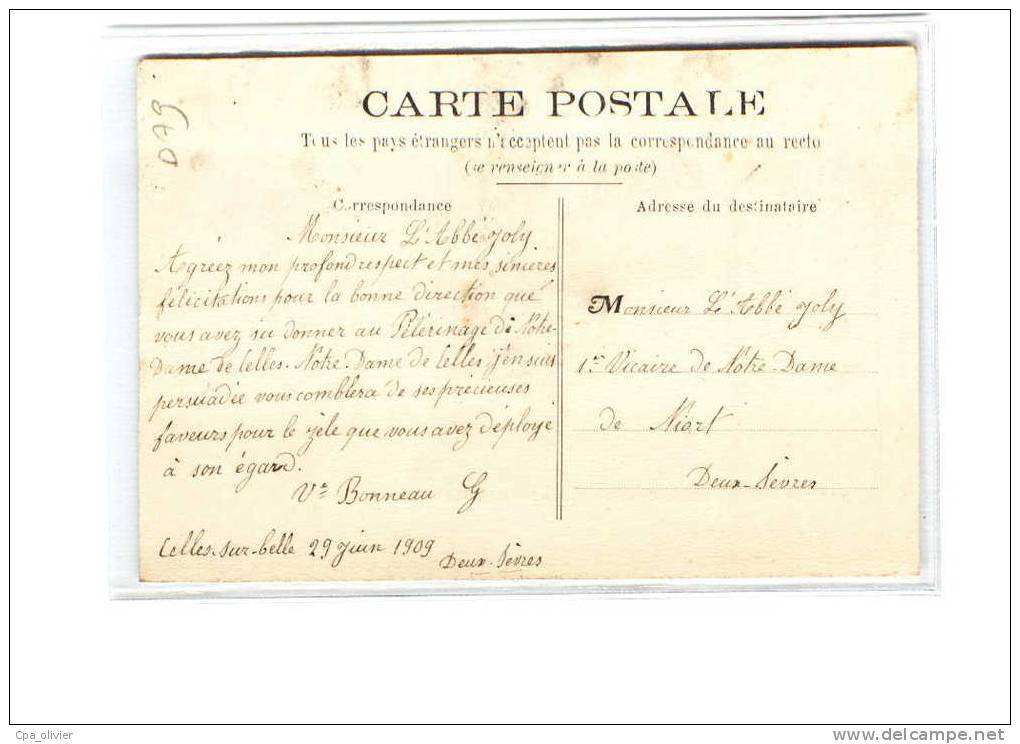 079
CARTE POSTALE
Tous les pays étrangers n'acceptent pas la correspondance au recto
(se renseigner à la poste)
Correspondance
Monsieur L'Abbé Joly
Agréez mon profond respect et mes sincères
félicitations pour la bonne direction que
vous avez su donner au Pélerinage de Notre-
Dame de Celles. Notre-Dame de Celles j'en suis
persuadée vous comblera de ses précieuses
faveurs pour le zèle que vous avez déployé
à son égard.
Vve Bonneau G
Celles-sur-belle 29 juin 1909
Deux-Sèvres
Adresse du destinataire
Monsieur L'Abbé Joly
1er Vicaire de Notre-Dame
de Niort
Deux-Sèvres
Cpa_olivier
www.delcampe.net